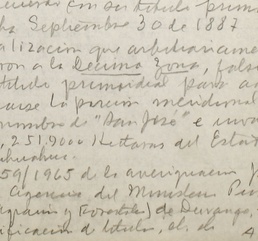 con su título prim
Septiembre 30 de 1887
alización que arbitrariame
ron a la Decima Zona, fals
título primordial para a
la porción meridional
nombre de "San José" e inva
, 251.9000 Hectareas del Estad
ihuahua.
59/1965 de la averiguacion
Agencia del Ministerio Pu
Agrarios y Forestales) de Durango,
ificacion de título, el de